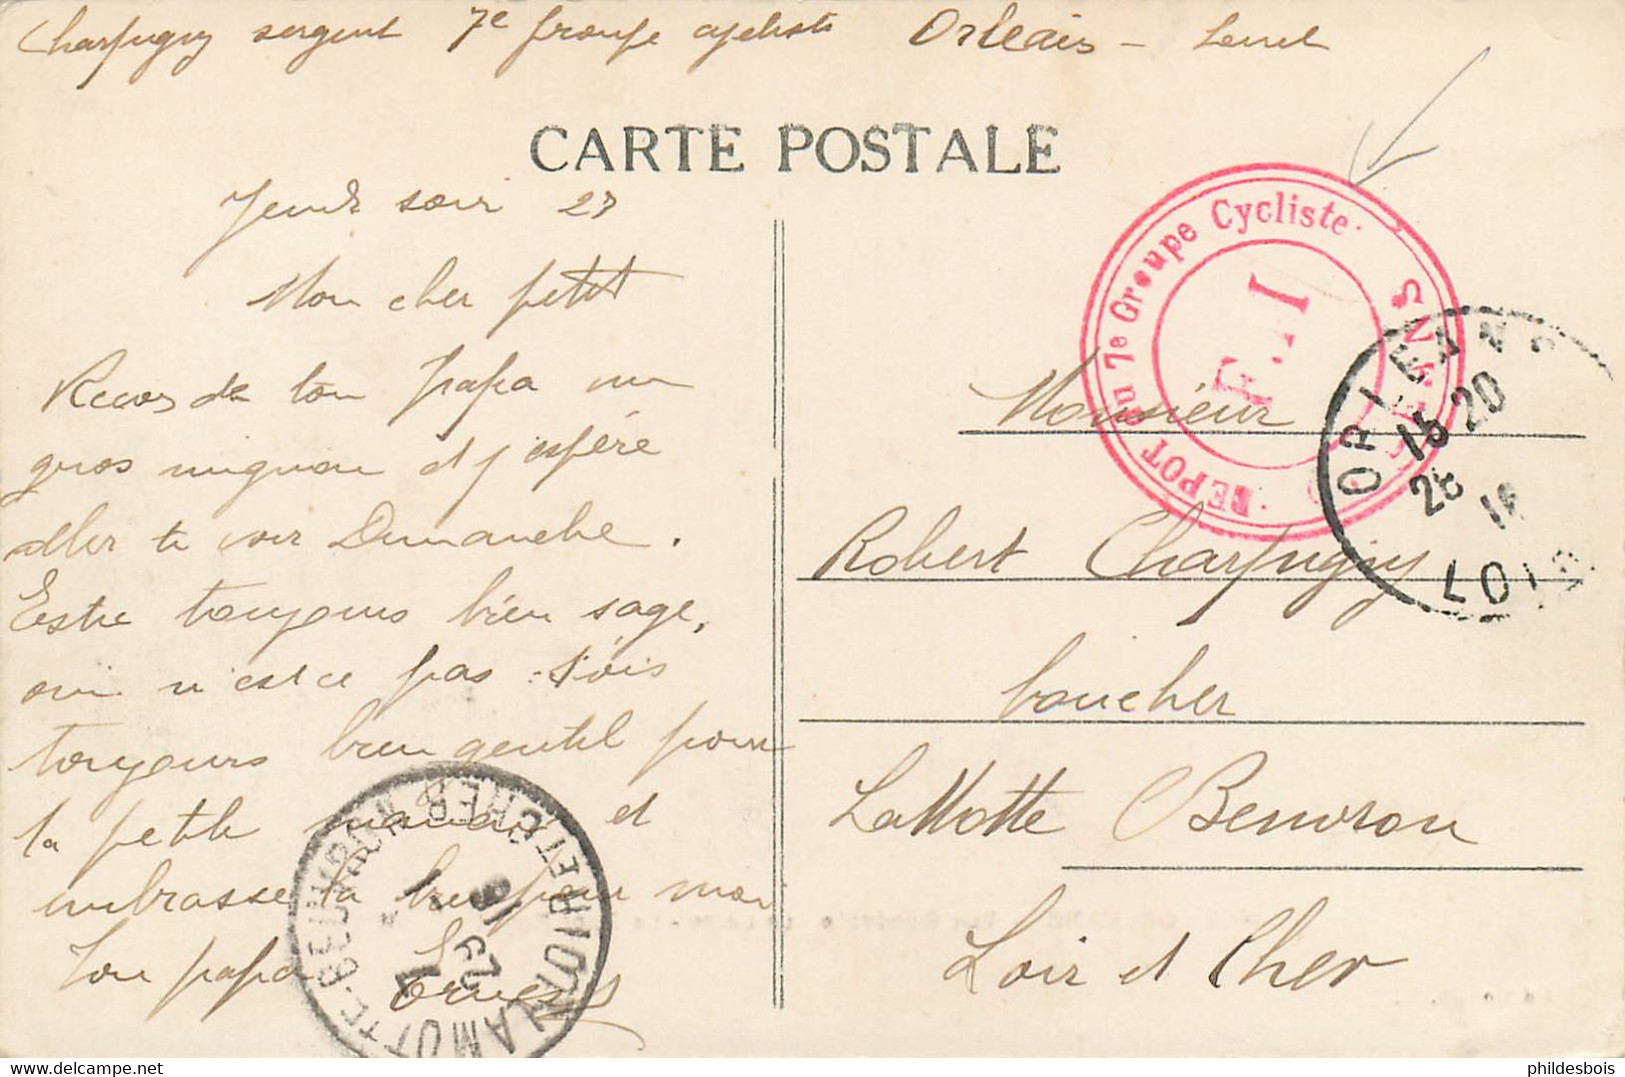 Charpugny sergent 7e groupe cycliste Orléais - Loiret
CARTE POSTALE
Jeudi soir 27
Mon cher petit
Recois de ton papa un
gros mignon et j'espère
aller te voir Dimanche.
Estre toujours bien sage,
oui n'est ce pas. Sois
toujours bien gentil pour
ta petite maman et
embrasse la bien pour moi
Ton papa Ernest
DEPOT du 7e Groupe Cycliste.
F.M
ORLEANS
15 20
28 16
LOIR
Monsieur
Robert Charpugny
boucher
LaMotte Beuvron
Loir et Cher
LAMOTTE-BEUVRON
LOIR ET CHER
29
16
phildesbois